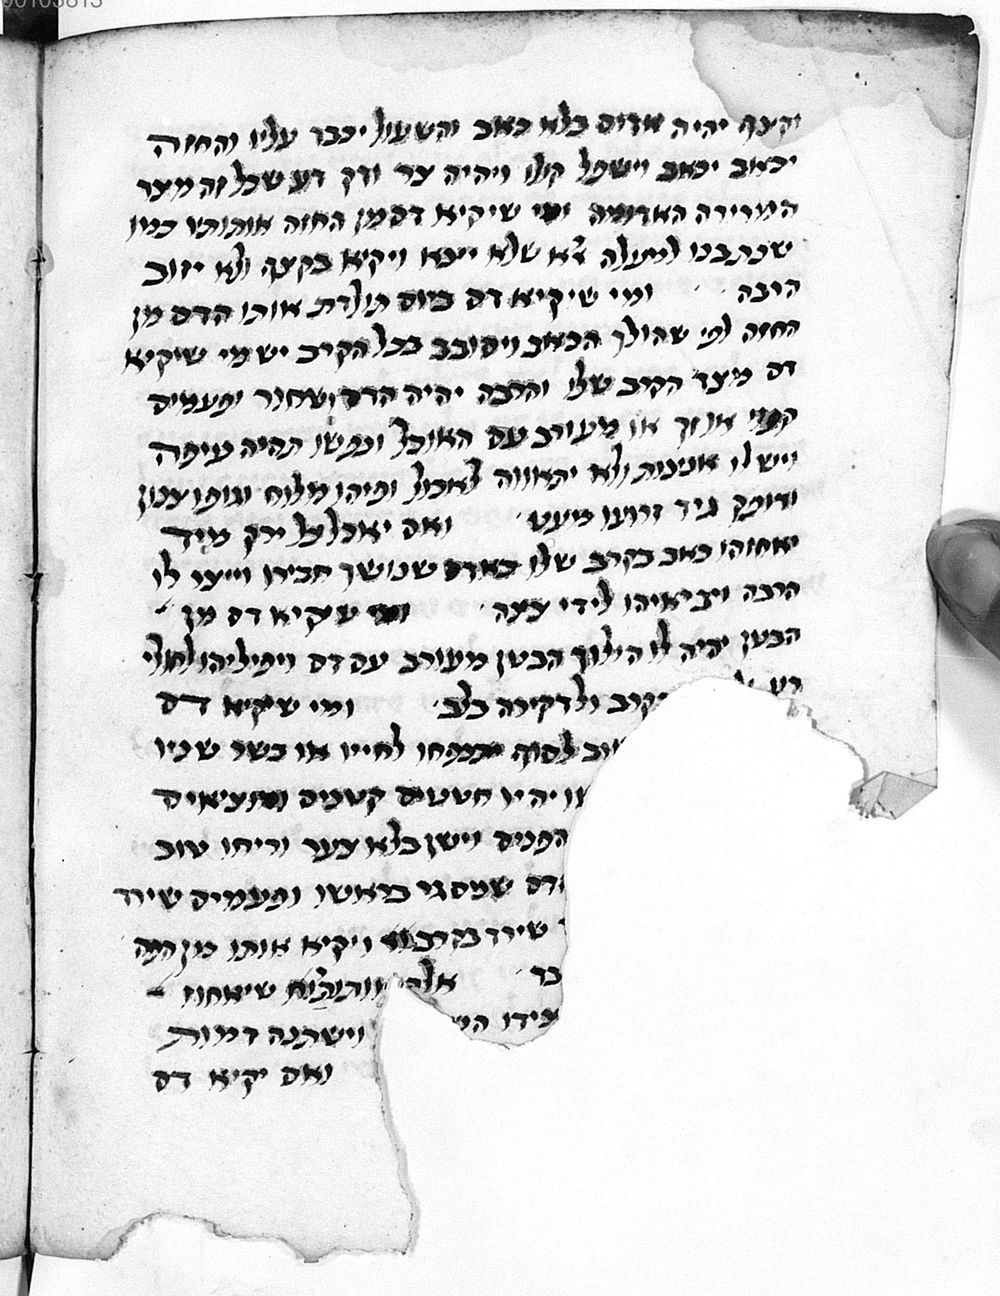 וקצף יהיה אדום בלא כאב והשעול יכבד עליו והחזה
יכאוב יכאב וישפל קולו ויהיה צר ודק דע שכל זה מצד
המרירה האדומה ומי שיקיא דם מן החזה אותותיו כמו
שכתבנו למעלה שלא ייצא ויקיא בקצף ולא יזוב
הרבה ומי שיקיא דם ביום תולדת אותו הדם מן
החזה לפי שהולך הכאב ויסובב בכל הקרב יש מי שיקיא
דם מצד הקרב שלו והרבה יהיה הדם שחור ופעמים
או מעורב עם האוכל ונפשו תהיה עיפה
ויש לו ולא יתאווה לאכול ופיהו מלוח וגופו צנון
ודופק גיד זרועו מעט ואם יאכל כל ירק מיד
יאחזהו כאב בקרב שלו כאדם שנושך חבירו וייצר לו
הרבה ויביאיהו לידי צער ומי שיקיא דם מן
הבטן יהיה לו הילוך הבטן מעורב עם דם ויפיליהו לחולי
רע בקרב ולדקירה בלב ומי שיקיא דם
לסוף לחייו או בשר שניו
יהיו חטטים קטנים ומוציאים
הפנים וישן בלא צער וריחו טוב
דם שמסגי בראשו ופעמים שירד
שירד בקרב ויקיא אותו מן הפה
אלה שיאחוז
מידו וישתנה דמות
ואם יקיא דם